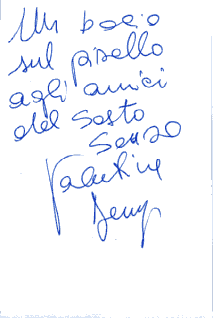 Un bacio
sul pisello
agli amici
del Sesto
Senso
Valentine
Demy